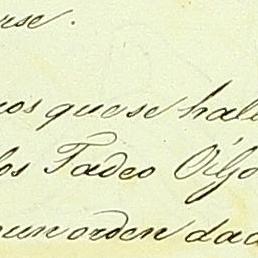 rse.
nos que se hall
los Tadeo
un orden dad